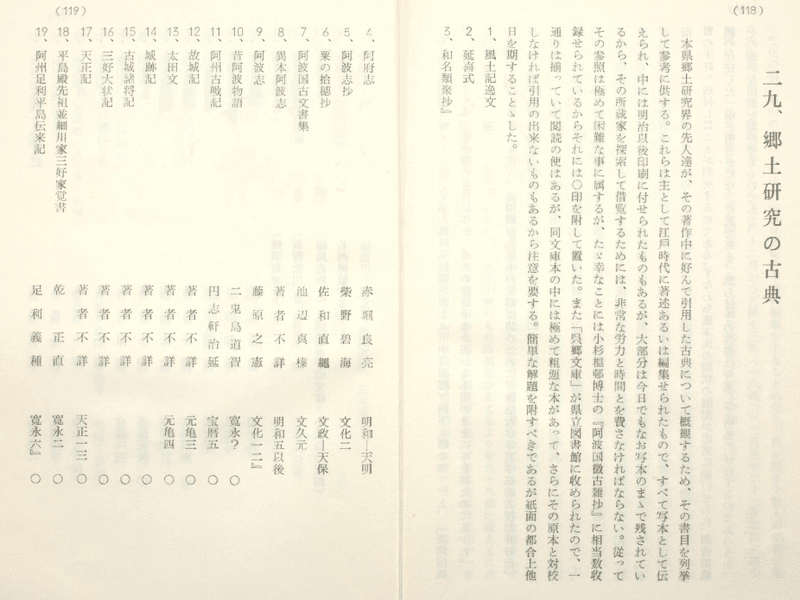 (118)
二九、郷土研究の古典
本県郷土研究界の先人達が、その著作中に好んで引用した古典について概観するため、その書目を列挙
して参考に供する。これらは主として江戸時代に著述あるいは編集せられたもので、すべて写本として伝
えられ、中には明治以後印刷に付せられたものもあるが、大部分は今日でもなお写本のまゝで残されてい
るから、その所蔵家を探索して借覧するためには、非常な労力と時間とを費さなければならない。従って
その参照は極めて困難な事に属するが、たゞ幸なことには小杉榲邨博士の『阿波国徴古雑抄』に相当数収
録せられているからそれには〇印を附して置いた。また「呉郷文庫」が県立図書館に収められたので、一
通りは揃っていて閲読の便はあるが、同文庫本の中には極めて粗悪な本があって、さらにその原本と対校
しなければ引用の出来ないものもあるから注意を要する。簡単な解題を附すべきであるが紙面の都合上他
日を期することゝした。
1、風土記逸文
2、延喜式
3、和名類聚抄』
(119)
4、阿府志 赤堀良亮 明和—天明
5、阿波志抄 柴野碧海 文化二
6、粟の拾穂抄 佐和直縄 文政—天保
7、阿波国古文書集 池辺真榛 文久元
8、異本阿波志 著者不詳 明和五以後
9、阿波志 藤原之憲 文化一二』
10、昔阿波物語 二鬼島道智 寛永? 〇
11、阿州古戦記 円志軒治延 宝暦五 〇
12、故城記 著者不詳 元亀三 〇
13、太田文 著者不詳 元亀四 〇
14、城跡記 著者不詳 〇
15、古城諸将記 著者不詳 〇
16、三好大状記 著者不詳 〇
17、天正記 著者不詳 天正一三 〇
18、平島殿先祖並細川家三好家覚書 乾正直 寛永二 〇
19、阿州足利平島伝来記 足利義種 寛永六』 〇